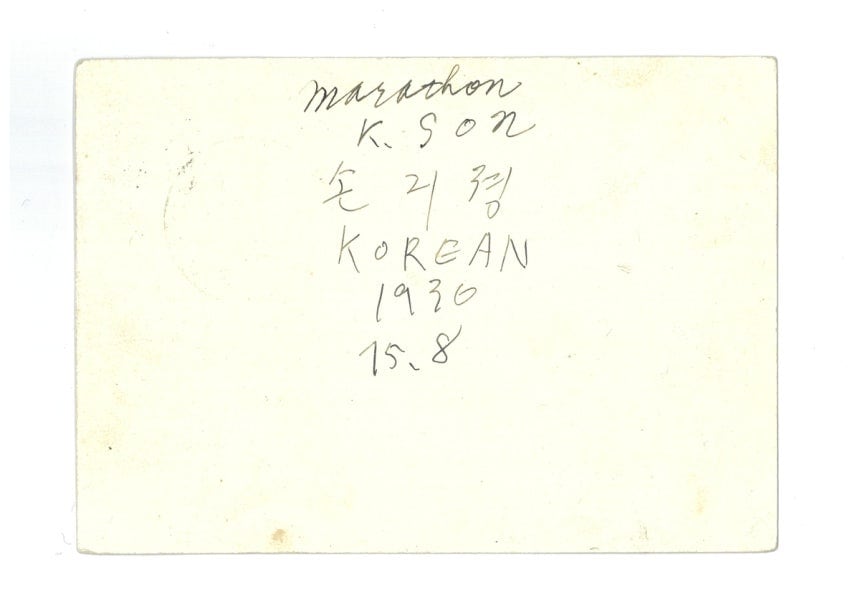 Marathon
K. SON
손 긔 졍
KOREAN
1936
15.8